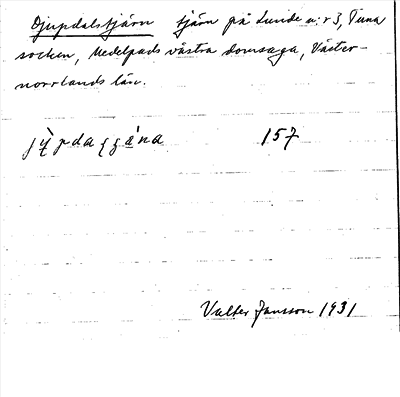 Djupdalstjärn tjärn på Lunde n:r 3, Tuna
socken, Medelpads västra domsaga, Väster-
norrlands län.
157
Valter Jansson 1931